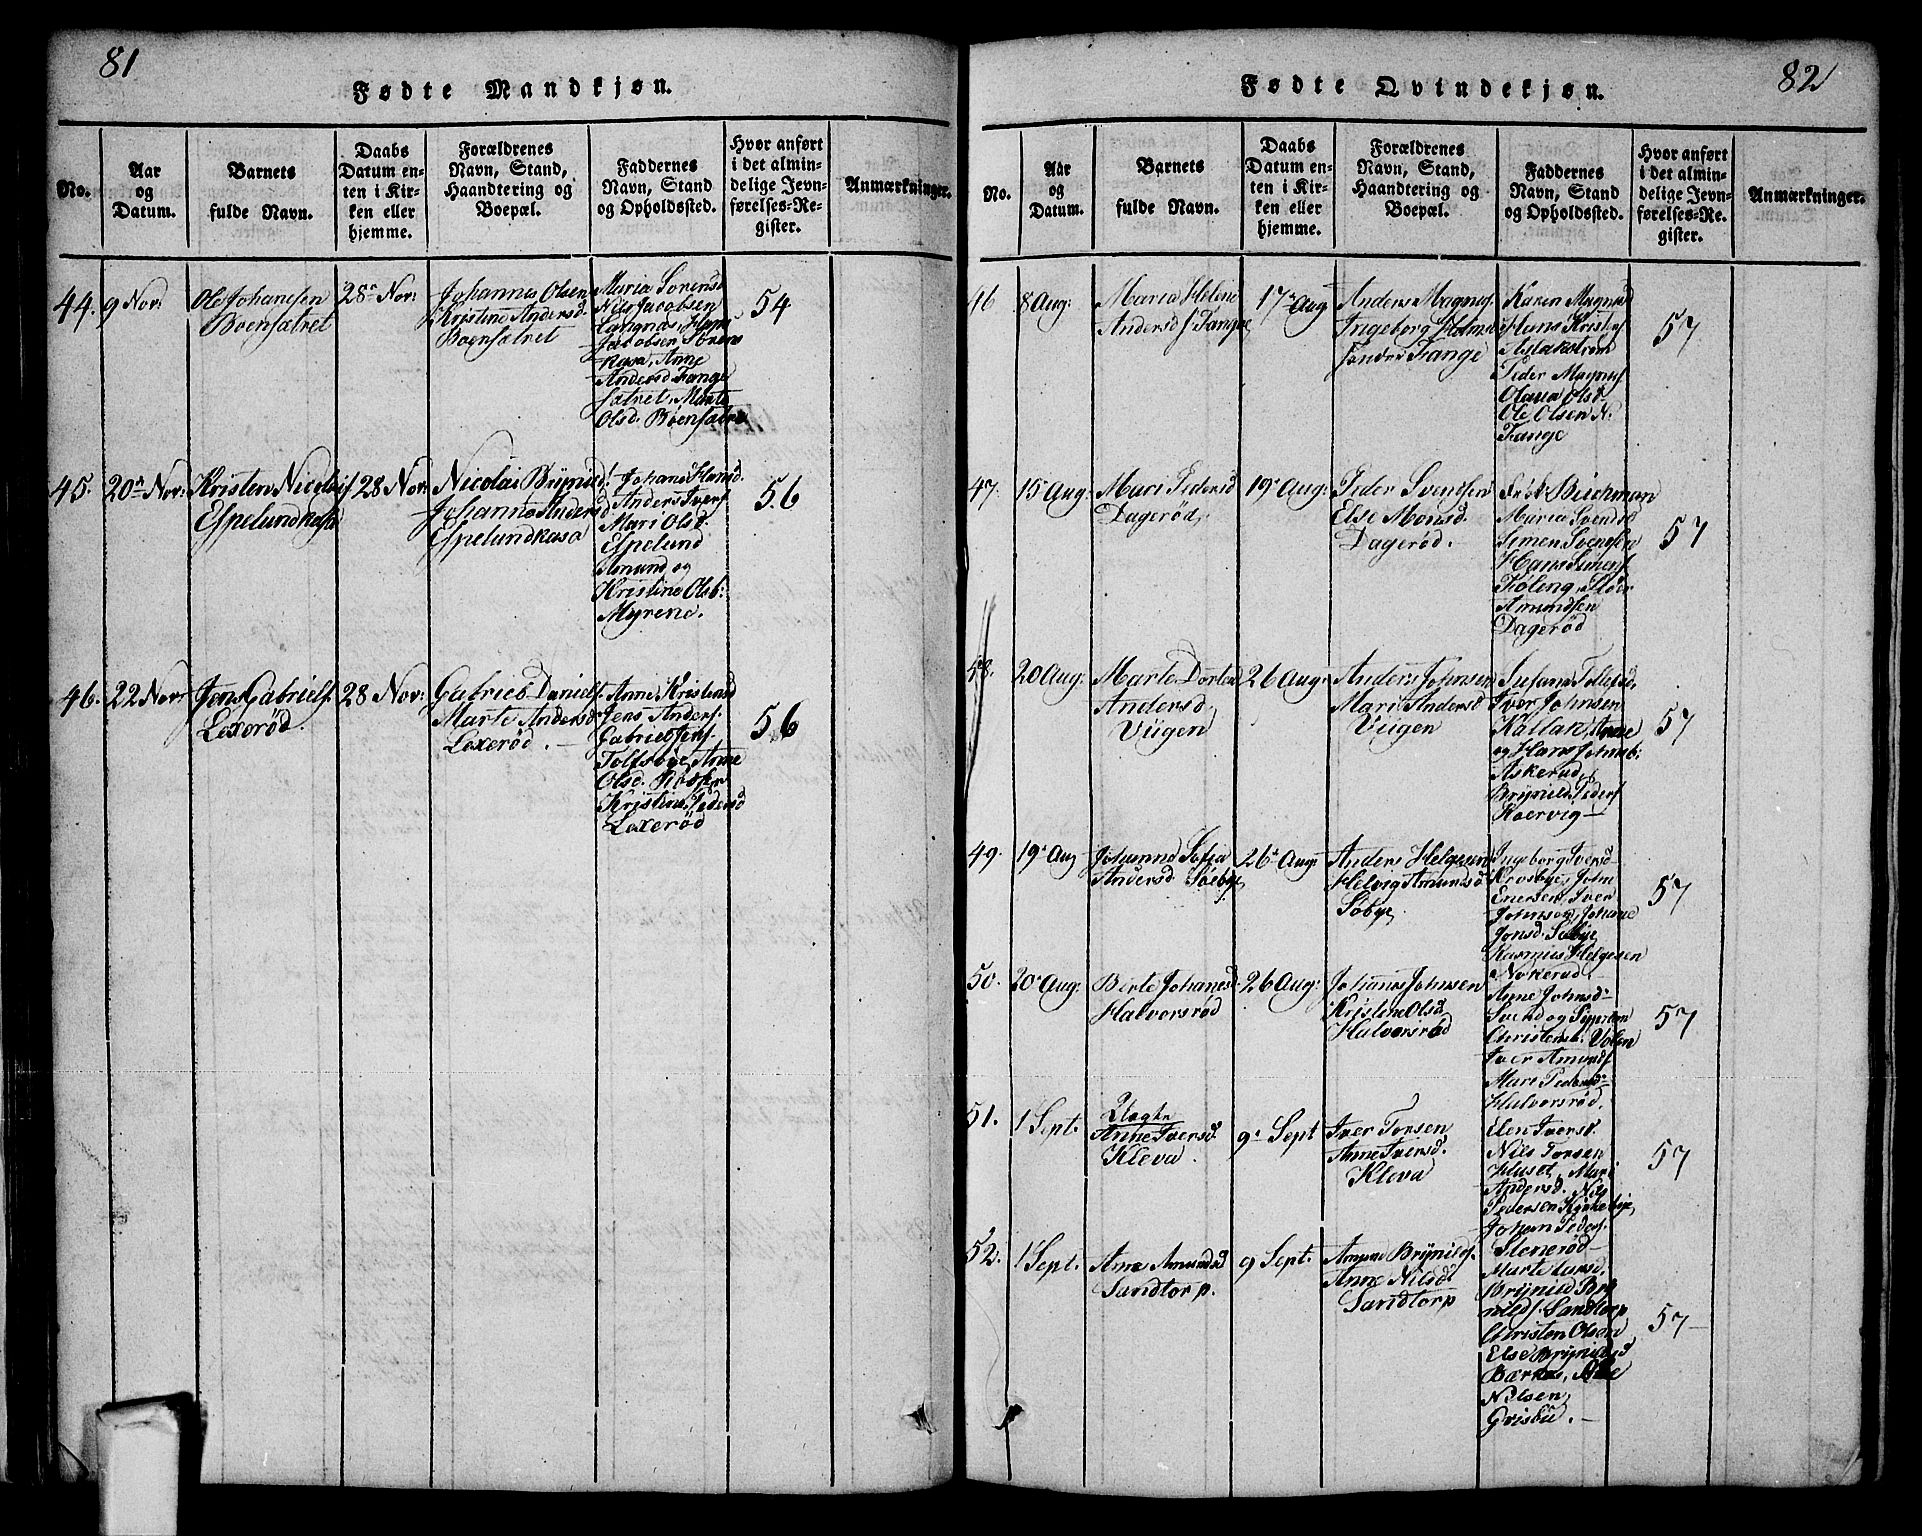 81
Fødte Mandkjøn.
No.
Aar
og
Datum.
Barnets
fulde Navn.
Daabs
Datum en-
ten i Kir-
ken eller
hjemme.
Forældrenes
Navn, Stand,
Haandtering og
Boepæl.
Faddernes
Navn, Stand
og Opholdssted.
Hvor anført
i det almin-
delige Jevn-
førelses-Re-
gister.
Anmærkninger.
44.
9 Nov:
Ole Johanesen
Boensætret
28 Nov:
Johannes Olsen
Kristine Andersd.
Boensætret
Maria Sorensd
Nils Jacobsen
Langnæs, Hans
Jacobsen Sorens
kasa, Anne
Andersd Tange
sætret, Marte
Olsd. Boensætre
54
45.
20 Nov:
Kristen Nicolais
Espelundkasa
28 Nov:
Nicolai Brÿnild:
Johanne Andersd
Espelundkasa
Johans Hansd.
Anders Ivers
Mari Olsd:
Espelund
Amund og
Kristine Olsb:
Myrene.
56
46.
22 Nov:
Jens Gabriels.
Loxerød
28 Nov:
Gabriel Daniels.
Marte Andersd
Loxerød. —
Anne Kristensd
Jens Anders.
Gabriel Jens.
Tolfsbye, Anne
Olsd.
Kristine Pedersd
Loxerød
56
82
Fødte Qvindekjøn.
No.
Aar
og
Datum.
Barnets
fulde Navn.
Daabs
Datum en-
ten i Kir-
ken eller
hjemme.
Forældrenes
Navn, Stand,
Haandtering og
Boepæl.
Faddernes
Navn, Stand
og Opholdssted.
Hvor anført
i det almin-
delige Jevn-
førelses-Re-
gister.
Anmærkninger.
46
8 Aug:
Maria Helene
Andersd Tange
17 Aug
Anders Magnus.
Ingeborg Holm
Tange
Karen Magnusd
Hans Krists.
Aslakstrøm
Peder Magnus.
Olava Olsd
Ole Olsen N.
Tange
57
47.
15 Aug:
Mari Pedersd
Dagerød,
19 Aug:
Peder Svendsen
Else Monsd.
Dagerød. —
Biechman
Maria Svendsd
Simen Svendsen
Hans Simens.
Toleng, Peder
Amundsen
Dagerød
57
48.
20 Aug:
Marte Dortea
Andersd.
Viigen
26 Aug:
Anders Johnsen
Mari Andersd
Viigen
Susana Tollefsd,
Iver Johnsen
Kallak, Anne
og Hans Johnsb:
Askerud,
Brÿnild Peders
Kaervig—
57
49.
19 Aug
Johanne Sofia
Andersd. Søebye
26 Aug:
Anders Helgesen
Helvig Amundsd
Søbye,
Ingeborg Iversd—
Krosbye, John
Enersen, Iver
Johnsen, Johane
Jonsd. Søbye
Rasmus Helgesen
Nokerud—
57
50.
20 Aug:
Berte Johanesd
Halvorsrød
26 Aug:
Johans Johnsen
Kristine Olsd
Halvorsrød
Anne Johnsd—
Svend og
Christensb. Volen
Iver Amunds
Mari Pedersd—
Halvorsrød.
57
51.
1 Sept.
Uægte
Anne Iversd.
Kleva.
9 Sept
Iver Torsen
Anne Iversd.
Kleva
Elen Iversd.
Nils Torsen
Huset, Mari
Andersd. Nils
Pedersen Kirkebye,
Johan Peders.
Stenerød—
57
52.
1 Sept.
Ane Amundsd
Sandtorp.
9 Sept.
Amun Brÿnilds.
Anne Nilsd.
Sandtorp
Marte Larsd.
Brÿnild Brÿ
nilds. Sandtorp
Christen Olsen
Else Brÿnildsd
Bærkas, Ole
Nilsen,
Grisbu. —
57—